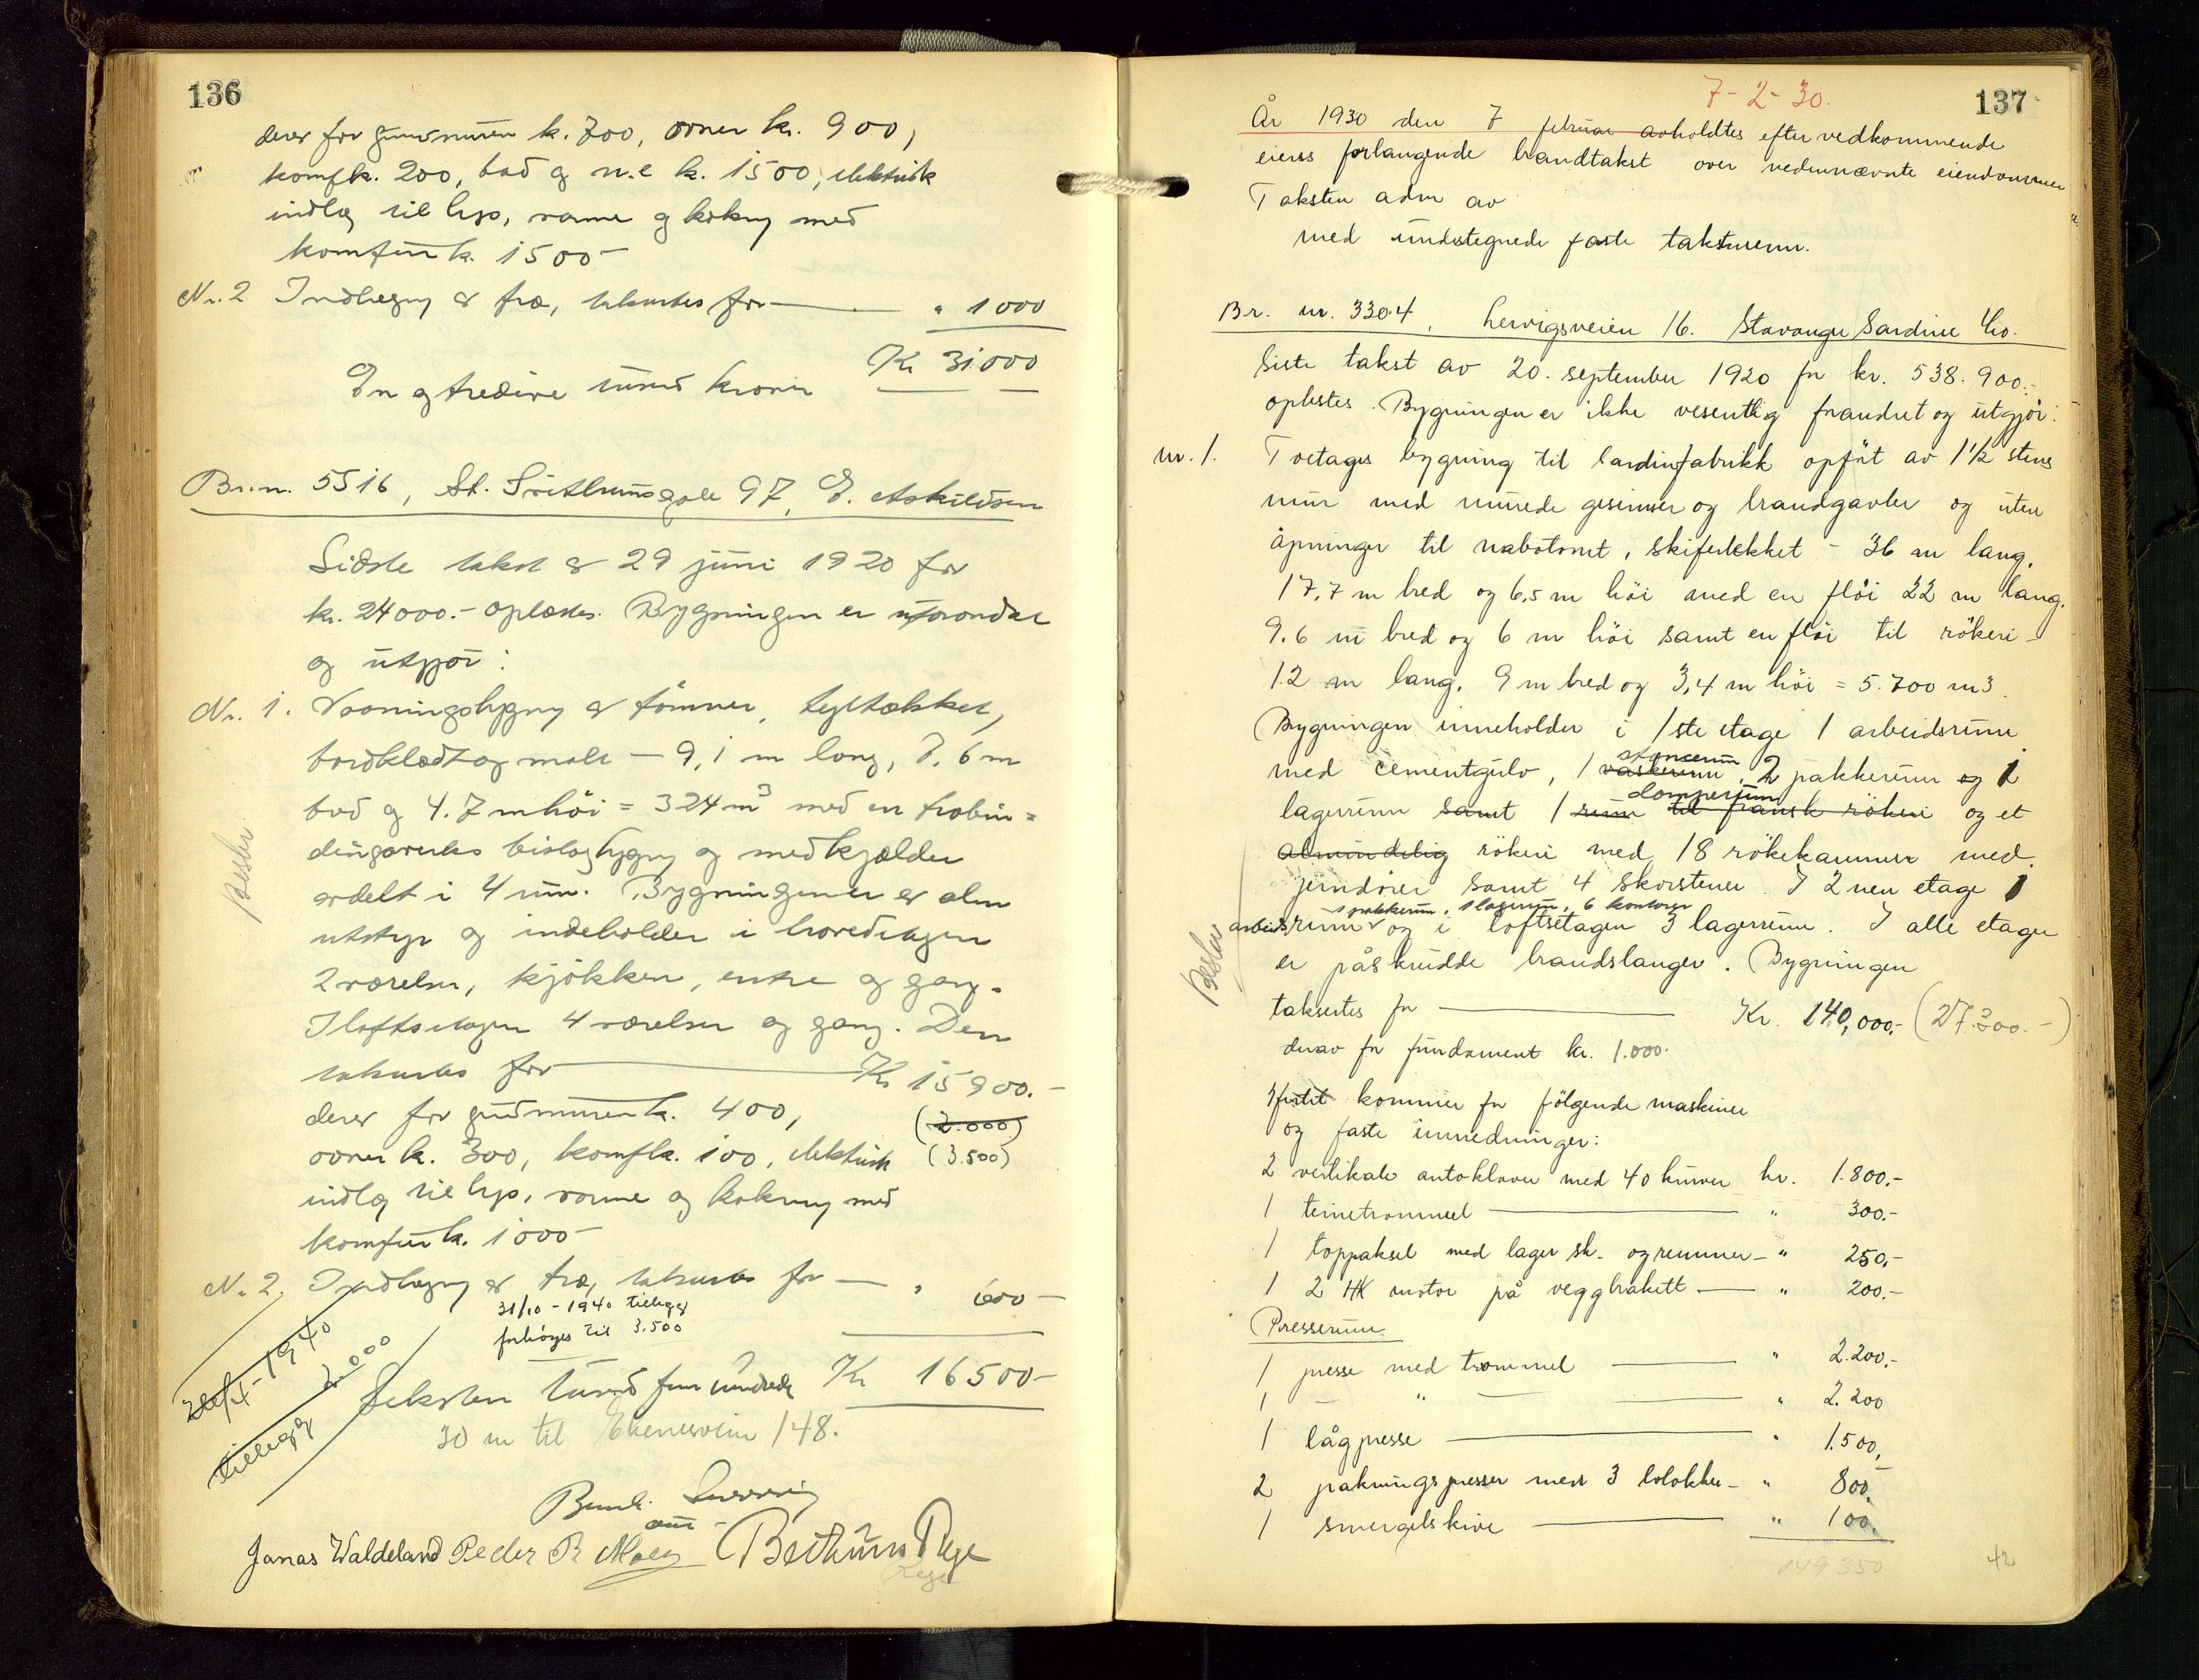 136
derav for grunnmuren k. 700, ovner kr. 900,
komfk. 200, bad og w.c k. 1500, elektrisk
indlæg til lys, varme og kokning med
komfur k. 1500-
Nr. 2 Indhegning av træ, taksertes for — " 1000
Kr 31.000
En og tredive tusind kroner
Br. nr. 5516, St. Svithunsgate 97, E. Askildsen
Sidste takst av 29 juni 1920 for
kr. 24000.- oplæstes. Bygningen er uforandret
og utgjør:
Nr. 1. Vaaningsbygning av tömmer, tegltækket,
bordklædt og malt — 9,1 m lang, 7,6 m
bred og 4.7 m höi = 324 m³ med en utobin=
dingsverks bislagbygning og med kjælder
avdelt i 4 rum. Bygningen er av alm
utstyr og indeholder i hovedetagen
2 værelser, kjøkken, entre og gang.
I loftsetagen 4 værelser og gang. Den
taksertes for — Kr 15900.-
derav for grundmuren k. 400, (2.000)
ovner k. 300, komfk. 100, elektrisk (3.500)
indlæg til lys, varme og kokning med
komfur k. 1000-
Nr. 2. Indhegning av træ, taksertes for — " 600-
31/10 - 1940 tillegg
forhöyes til 3.500
1940
tillegg 2.000
Seksten tusind fem hundrede Kr 16500-
30 m til 148.
Jonas Waldeland Peder R. Moen
Bethuus Rege
Rege
Besku
7-2-30.
137
År 1930 den 7 februar avholdtes efter vedkommende
eieres forlangende brandtakst over nedennævnte eiendommer
Taksten adm av
med undertegnede faste takstmenn.
Br. nr. 3304, Lervigsveien 16. Stavanger Sardine Co.
Siste takst av 20. september 1920 for kr. 538.900.-
oplestes. Bygningen er ikke vesentlig forandret og utgjør:
nr. 1. Toetages bygning til sardinfabrikk opført av 1½ stens
mur med murede gesimser og brandgavler og uten
åpninger til nabotomt, skifertekket - 36 m lang,
17,7 m bred og 6,5 m höi med en flöi 22 m lang,
9.6 m bred og 6 m höi samt en flöi til rökeri -
12 m lang, 9 m bred og 3,4 m höi = 5.700 m3.
Bygningen inneholder i 1ste etage 1 arbeidsrum
med cementgulv, 1 vaskerum, 2 pakkerum og 1
damperum
lagerrum samt 1 rum til fransk rökeri og et
almindelig rökeri med 18 rökekammer med
jerndører samt 4 skorstener. I 2nen etage 1
1 pakkerum, 1 lagerum, 6 kontorer
arbeidsrum og i loftsetagen 3 lagerrum. I alle etager
er påskrudde brandslanger. Bygningen
taksertes for — Kr. 140,000.- (27.300.-)
derav for fundament kr. 1.000.
Ifertil kommer for følgende maskiner
og faste innredninger:
2 vertikale autoklaver med 40 kurver kr. 1.800.-
1 teinetrommel — " 300.-
1 toppaksel med lager sk. og remmer — " 250.-
1 2 HK motor på veggbrakett — " 200.-
Presserum
1 presse med trommel — " 2.200.-
1 — " — " 2.200
1 lågpresse — " 1.500,
2 pakningspresser med 3 blokker — " 800.
1 smergelskive — " 100.
149350
42